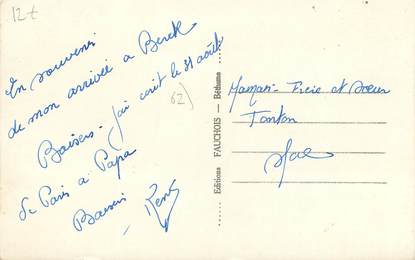 12t
En souvenir
de mon arrivée a Berck
Baisers - j'ai écrit le 31 août
62)
de Paris a Papa
Baisers René
Editions FAUCHOIS - Béthune
Maman - et soeur
Tonton